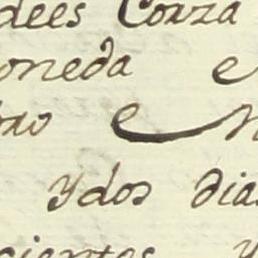 dees Corza
oneda e
bro e
y dos dias
cientos y